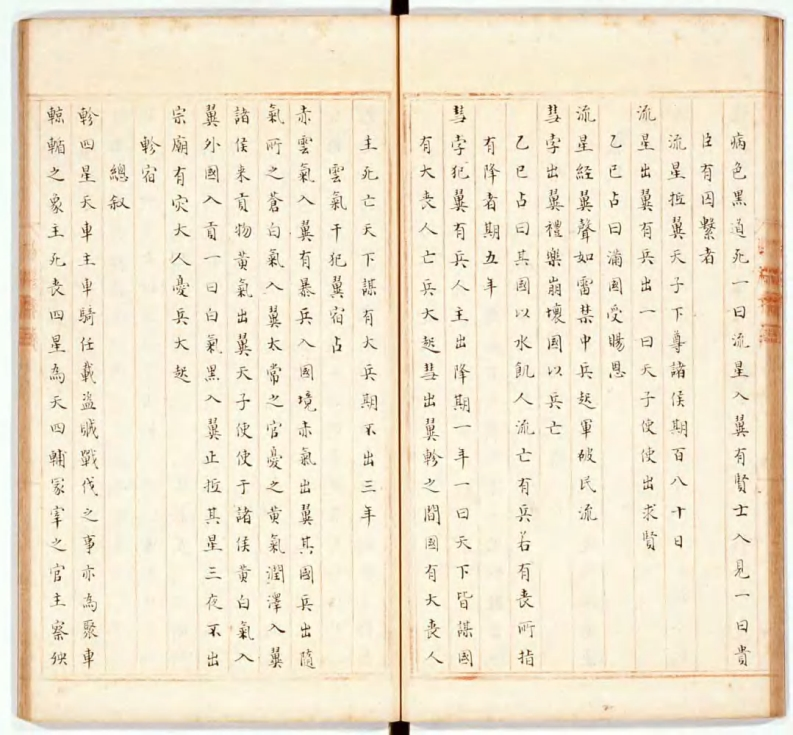 病色黑道死一曰流星入翼有賢士入見一曰貴
臣有因繫者
流星抵翼天子下尊諸侯期百八十日
流星出翼有兵出一曰天子使使出求賢
乙巳占曰滿國受賜恩
流星經翼聲如雷禁中兵起軍破民流
彗孛出翼禮樂崩壞國以兵亡
乙巳占曰其國以水飢人流亡有兵若有喪所指
有降者期五年
彗孛犯翼有兵人主出降期一年一曰天下皆謀國
有大喪人亡兵大起彗出翼軫之間國有大喪人
主死亡天下謀有大兵期不出三年
雲氣干犯翼宿占
赤雲氣入翼有暴兵入國境赤氣出翼其國兵出隨
氣所之蒼白氣入翼太常之官憂之黄氣潤澤入翼
諸侯来貢物黄氣出翼天子使使于諸侯黄白氣入
翼外國入貢一曰白氣黑入翼止抵其星三夜不出
宗廟有灾大人憂兵大起
軫宿
總叙
軫四星天車主車騎任載盗賊戰伐之事亦為聚車
轅輶之象主死喪四星為天四輔冡宰之官主察殃